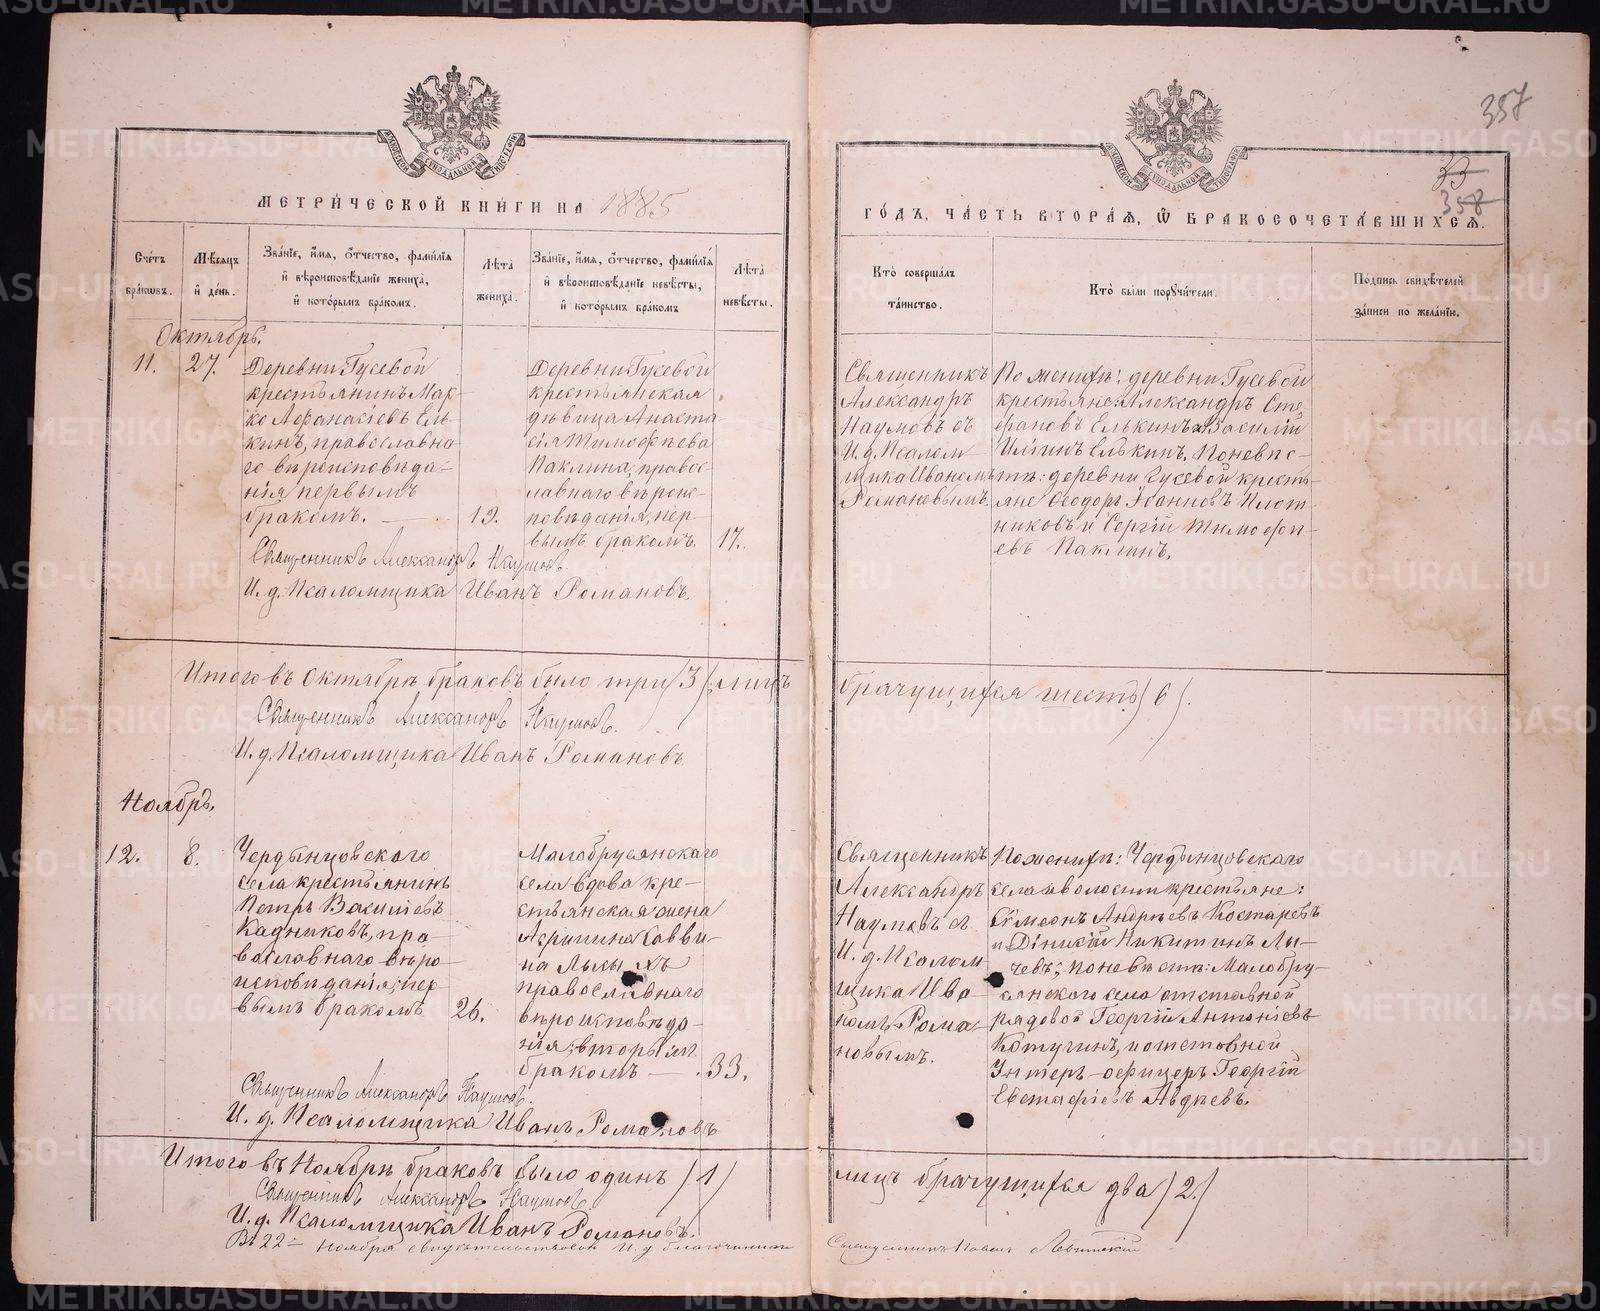 МЕТРИ́ЧЕСКОЙ КНИ́ГИ НА 1885
Сче́тъ бра́кѡвъ.
Мѣ́сѧцъ и҆ де́нь.
Зва́нїе, и҆́мѧ, ѻ҆́тчество, фами́лїѧ и҆ вѣроисповѣ́данїе жениха̀, и҆ кото́рымъ бра́комъ.
Лѣ́та жениха̀.
Зва́нїе, и҆́мѧ, ѻ҆́тчество, фами́лїѧ и҆ вѣроисповѣ́данїе невѣ́сты, и҆ кото́рымъ бра́комъ
Лѣ́та невѣ́сты.
Октябрь.
11.
27.
Деревни Гусевой
крестьянинъ Мар-
ко Афанасіевъ Ель-
кинъ, православна-
го вѣроисповѣда-
нія первымъ
бракомъ.
19.
Деревни Гусевой
крестьянская
дѣвица Анаста
сія Тимофѣева
Паклина, правос-
лавнаго вѣроис-
повѣданія, пер-
вымъ бракомъ.
17.
Священникъ Александръ Наумовъ.
И. д. Псаломщика Иванъ Романовъ.
Итого въ Октябрѣ браковъ было три /3/, лицъ
Священникъ Александръ Наумовъ.
И. д. Псаломщика Иванъ Романовъ
Ноябрь.
12.
8.
Чердынцовскаго
села крестьянинъ
Петръ Василіевъ
Кадниковъ, пра-
вославнаго вѣро-
исповѣданія, пер-
вымъ бракомъ
26.
Малобрусянскаго
села вдова кре-
стьянская жена
Агрипина Савви-
на
православнаго
вѣроисповѣда-
нія; вторымъ
бракомъ
33.
Священникъ Александръ Наумовъ.
И. д. Псаломщика Иванъ Романовъ
Итого въ Ноябрѣ браковъ было одинъ /1/
Священникъ Александръ Наумовъ.
И. д. Псаломщика Иванъ Романовъ.
В. 22 ноября свидѣтельствовалъ И. д благочиннаго
357
33
358
ГО́ДЪ, ЧА́СТЬ ВТОРА́Ѧ, Ѽ БРАКОСОЧЕТА́ВШИХСѦ.
Кто̀ соверша́лъ та́инство.
Кто̀ бы́ли порꙋчи́тели.
По́дпись свидѣ́телей за́писи по жела́нїю.
Священникъ
Александръ
Наумовъ съ
И. д. Псалом-
щика Иваномъ
Романовымъ.
По женихѣ: деревни Гусевой
крестьяне: Александръ Сте-
фановъ Елькинъ и Василій
Ильинъ Елькинъ. По невѣс-
тѣ: деревни Гусевой кресть-
яне Ѳеодоръ Іоанновъ Плот-
никовъ и Сергій Тимофѣ-
евъ Паклинъ.
брачущихся шесть /6/.
Священникъ
Александръ
Наумовъ съ
И. д. Псалом
щика Ива-
номъ Рома-
новымъ.
По женихѣ: Чердынцовскаго
села и волости крестьяне:
Сѵмеонъ Андреевъ Костаревъ
и Никитинъ Лы-
чевъ; по невѣстѣ: Малобру-
сянского села отставной
рядовой Георгій Антоніевъ
Котугинъ, и отставной
Унтеръ-офицеръ Георгій
Евстафіевъ Авдѣевъ.
лицъ брачущихся два /2./
Священникъ Павелъ Левитскій